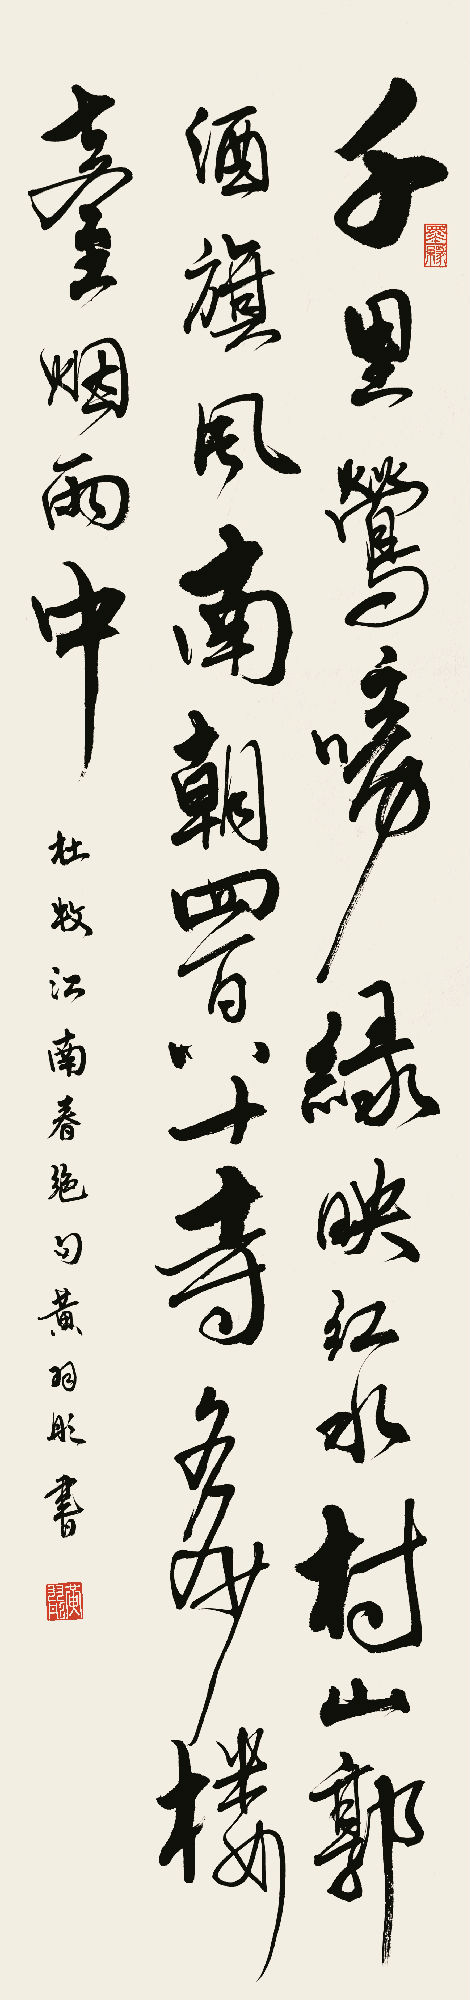 千里鶯啼緑映红水村山郭
酒旗风南朝四百八十寺多少楼
臺烟雨中
杜牧江南春绝句黄羽彤書